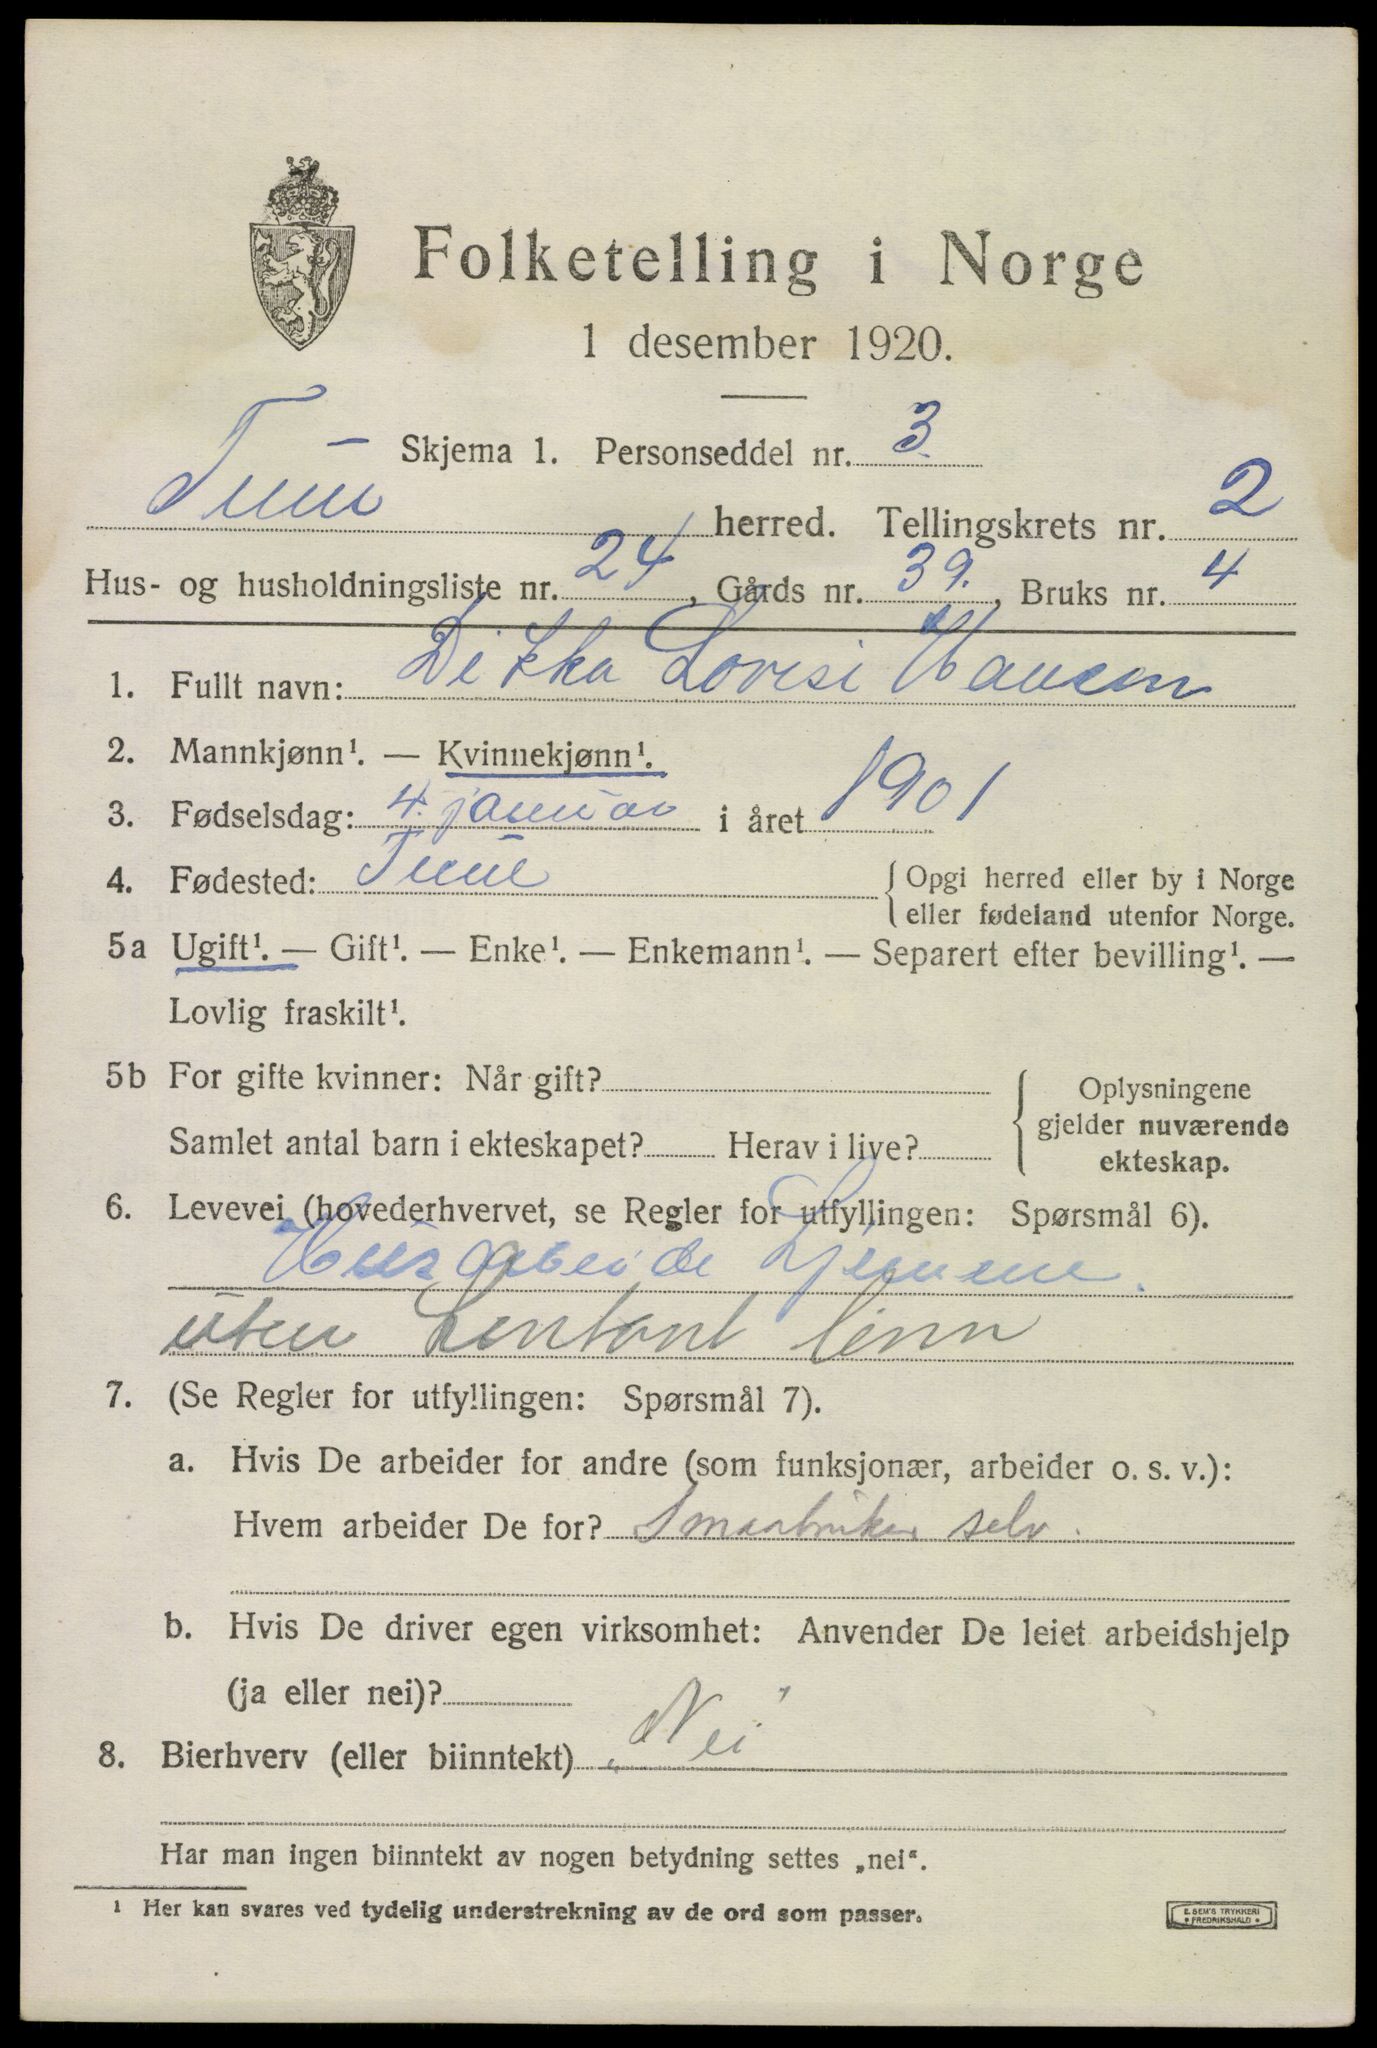 Folketelling i Norge
1 desember 1920.
Skjema 1. Personseddel nr. 3
Tune herred. Tellingskrets nr. 2
Hus- og husholdningsliste nr. 24, Gårds nr. 39., Bruks nr. 4
1. Fullt navn: Dikka Lovise Hansen
2. Mannkjønn¹. — Kvinnekjønn¹.
3. Fødselsdag: 4. januar i året 1901
4. Fødested: Tune { Opgi herred eller by i Norge
eller fødeland utenfor Norge.
5a Ugift¹. — Gift¹. — Enke¹. — Enkemann¹. — Separert efter bevilling¹. —
Lovlig fraskilt¹.
5b For gifte kvinner: Når gift?
Samlet antal barn i ekteskapet? Herav i live?
{ Oplysningene
gjelder nuværende
ekteskap.
6. Levevei (hovederhvervet, se Regler for utfyllingen: Spørsmål 6).
Husarbeide Hjemme.
uten kontant lønn
7. (Se Regler for utfyllingen: Spørsmål 7).
a. Hvis De arbeider for andre (som funksjonær, arbeider o. s. v.):
Hvem arbeider De for? Smaabruker selv.
b. Hvis De driver egen virksomhet: Anvender De leiet arbeidshjelp
(ja eller nei)?
8. Bierhverv (eller biinntekt) „Nei"
Har man ingen biinntekt av nogen betydning settes „nei".
¹ Her kan svares ved tydelig understrekning av de ord som passer.
E. SEM'S TRYKKERI
• FREDRIKSHALD •